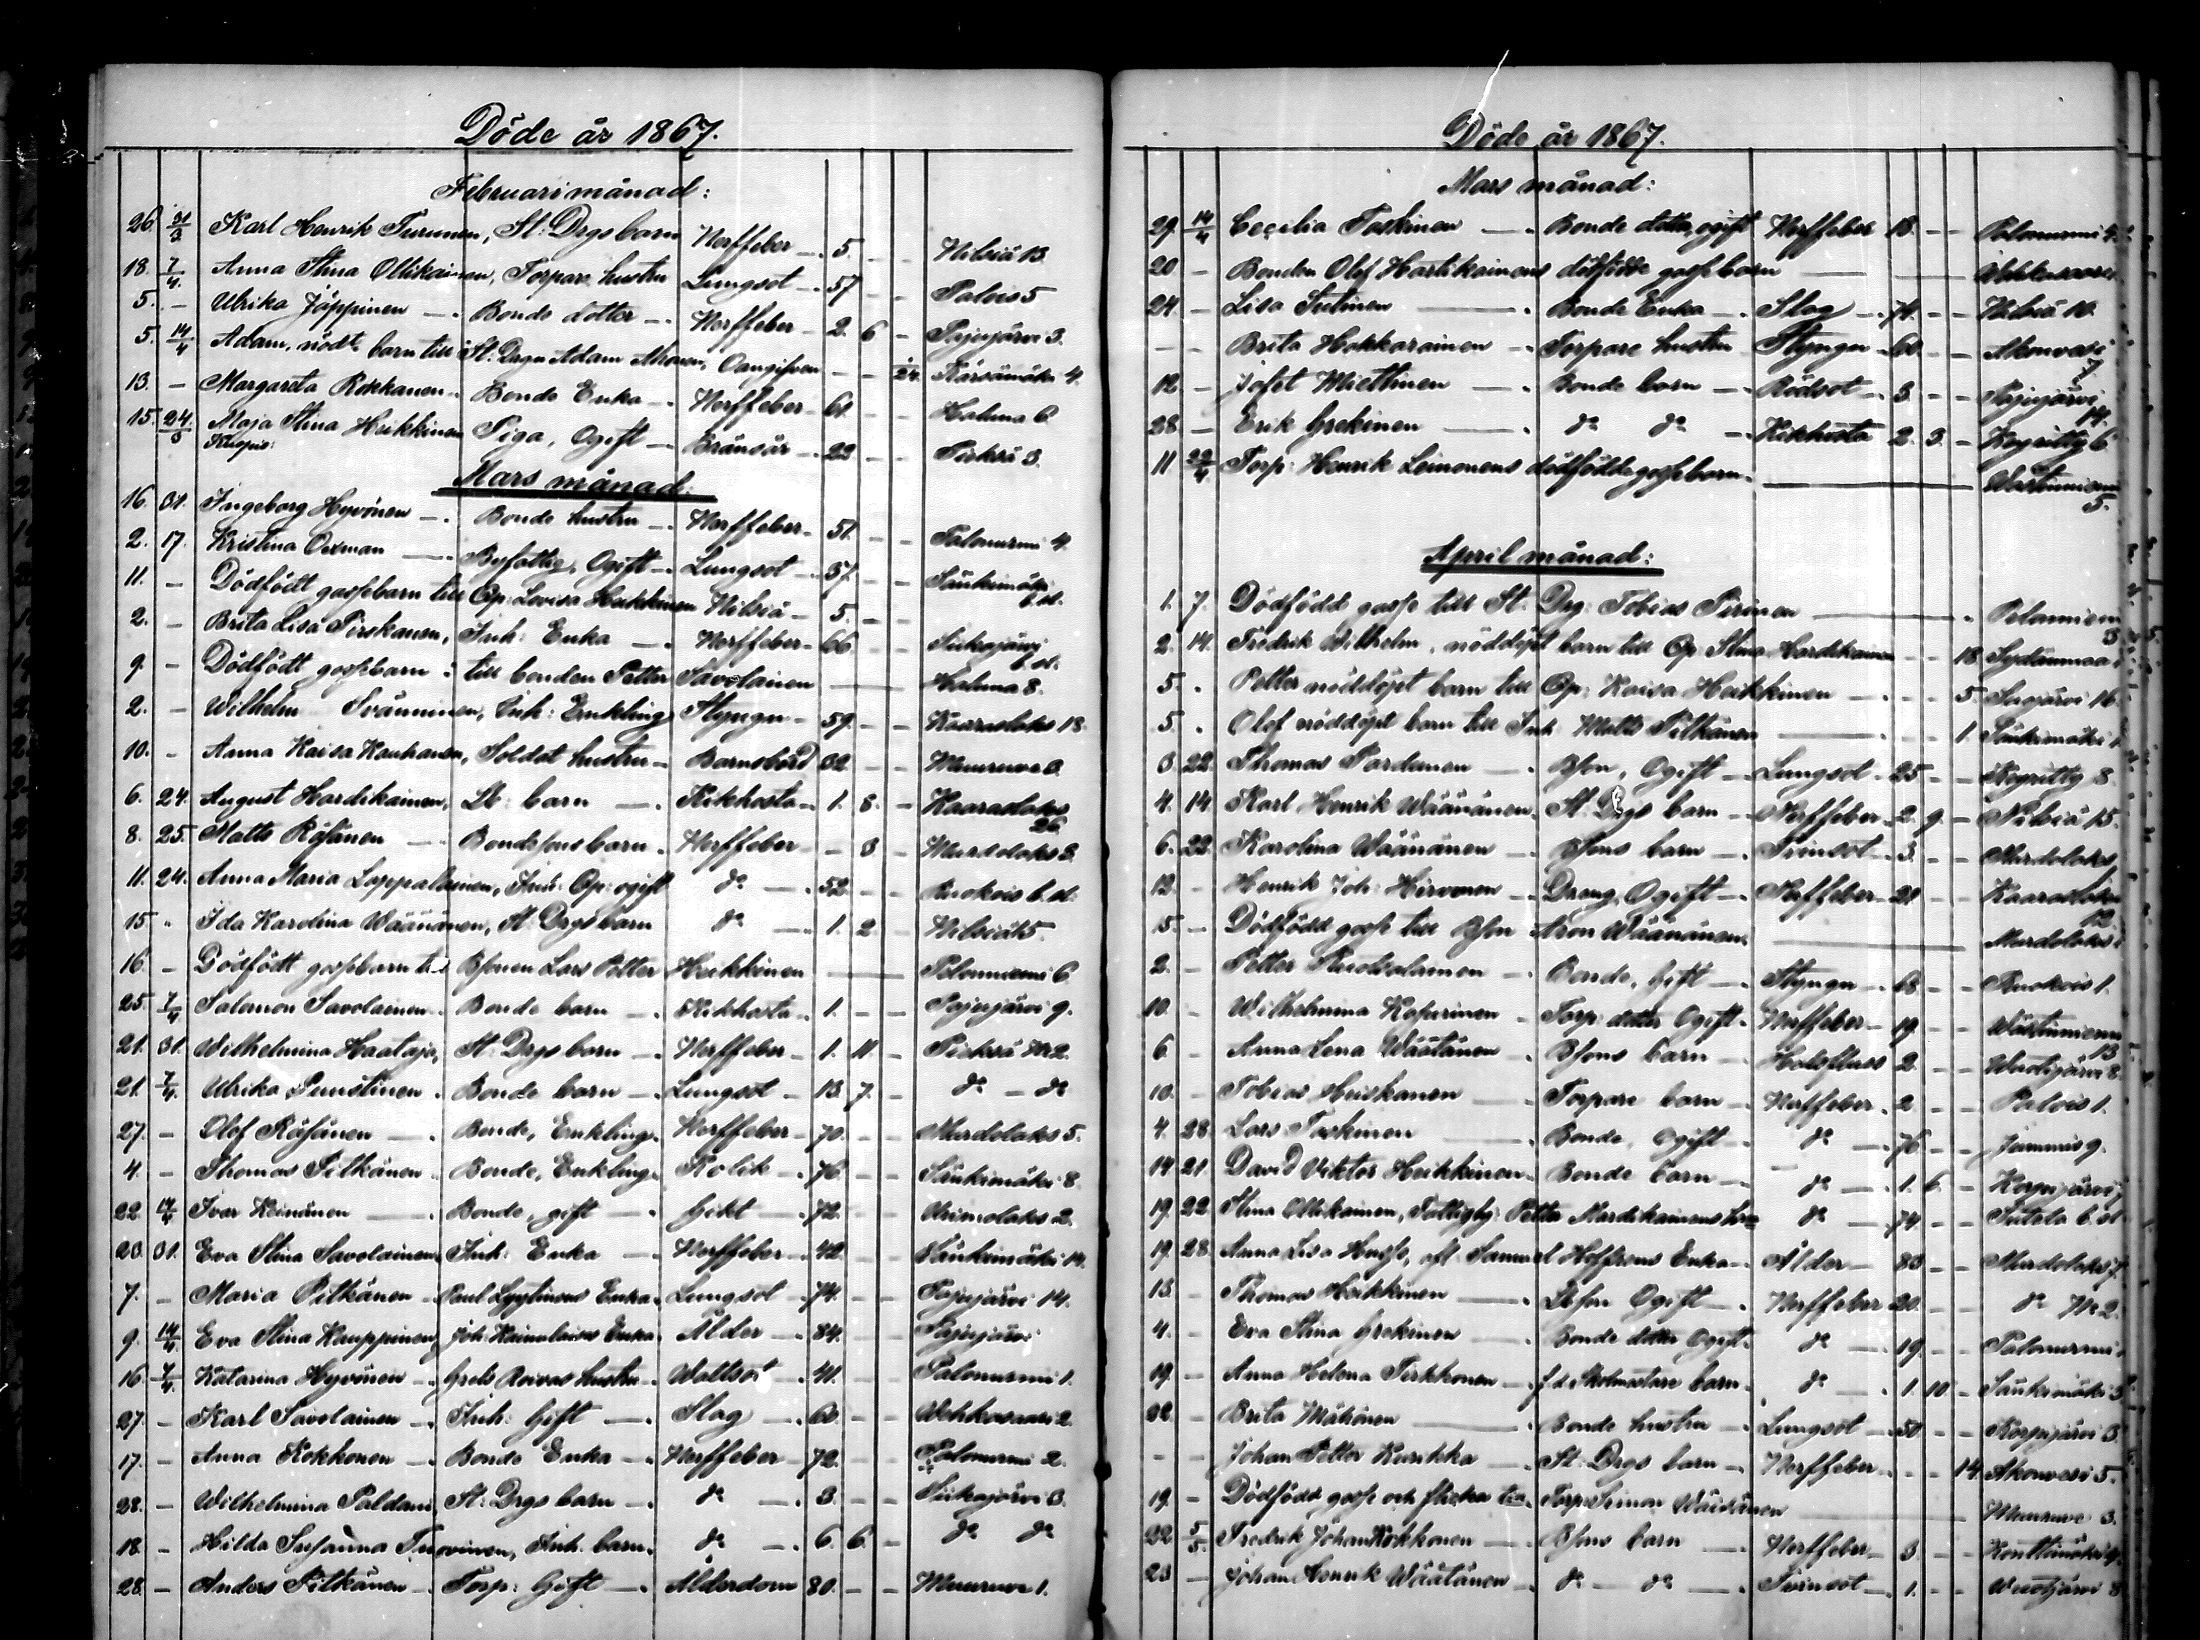 Döde år 1867.
Februari månad:
26. 31/3 Karl Henrik Turunen, St: Drgs barn Nerffeber 5. Nilsiä 13.
18. 7/4 Anna Stina Ollikainen, Torpare hustru Lungsot 57 Palois 5
5. – Ulrika Jäppinen – Bonde dotter – Nerffeber 2. 6 – Pajujärvi 3.
5. 14/4 Adam, nödt. barn till St: Drgn Adam Ahonen, Oangifven – – 24. Kärsämäki 4.
13. – Margareta Rokkanen – Bonde Enka – Nerffeber 61. Haluna 6.
15. 24/3 Maja Stina Heikkinen Piga, Ogift – Brånsår – 22 Pieksä 3.
Kuopio:
Mars månad:
16. 31. Ingeborg Hyvönen – Bonde hustru – Nerffeber 51. – – Palonurmi 4.
2. 17. Kristina Oxman – Byfattig, Ogift – Lungsot – 37. Sänkimäki b.st.
11. – Dödfödt gossebarn till Qp: Lovisa Heikkinen Nilsiä – 5.
2. – Brita Lisa Pirskanen, Inh: Enka – Nerffeber – 66 Siikajärvi b.st.
9. – Dödfödt gossebarn till bonden Petter Savolainen – Haluna 8.
2. – Wilhelm Svänninen, Inh: Enkling Styngn – 59. – – Kaaraslaks 18.
10. – Anna Kaisa Kauhanen, Soldat hustru – Barnsbörd 32 – – Muuruve 3.
6. 24. August Hardikainen, Lb: barn – Kikhosta – 1. 8. – Kaaraslaks 26.
8. 25. Matts Räsänen – Bondesons barn – Nerffeber – – 3 – Murdolaks 3.
11. 24. Anna Maria Lappalainen, Inh: Qp: ogift do – 52. – – Ruokois b.st.
15 " Ida Karolina Wäänänen, St: Drgs barn do – 1. 2. Nilsiä 15.
16. – Dödfödt gossebarn till Bsonen Lars Petter Heikkinen – Pelonniemi 6.
25. 7/4 Salamon Savolainen – Bonde barn – Kikhosta – 1. – – Pajujärvi 9.
21. 31. Wilhelmina Haataja, St: Drgs barn – Nerffeber – 1. 11. – Pieksä No 2.
21. 7/4 Ulrika Puustinen – Bonde barn – Lungsot – 13. 7. – do – do
27. – Olof Räsänen – Bonde, Enkling – Nerffeber – 70. – Murdolaks 5.
4. – Thomas Pitkänen – Bonde, Enkling – Kolik – 76. – – Sänkimäki 8.
22. 14/4 Ivar Keinänen – Bonde, gift – Gikt – 72. – –
20. 31. Eva Stina Savolainen, Inh: Enka – Nerffeber – 42. – – Sänkimäki 14.
7. – Maria Pitkänen – Paul Lyytinens Enka – Lungsot – 74. – – Pajujärvi 14.
9. 14/4 Eva Stina Kauppinen, Joh: Kainulainens Enka – Ålder – 84. – – Pajujärvi
16. 7/4 Katarina Hyvönen – Grels Roivas hustru – Wattsot – 41. – – Palonurmi 1.
27. – Karl Savolainen – Inh: Gift – Slag – 63. – – Wehkasaari 2.
17. – Anna Kokkonen – Bonde Enka – Nerffeber – 72. – – Palonurmi 2.
28. – Wilhelmina Paldan, St: Drgs barn – do – 3. – – Siikajärvi 3.
18. – Hilda Susanna Tuovinen, Inh. barn – do – 6. 6. – do do
28. – Anders Pitkänen – Torp: Gift – Ålderdom 80. – – Muuruve 1.
Döde år 1867.
Mars månad:
29. 14/4 Cecilia Taskinen – Bonde dotter, ogift Nerffeber 18. – – Palonurmi 4.
20 – Bonden Olof Hartikainens dödfödde gossebarn – Wehkasaari
24. – Lisa Sutinen – Bonde Enka – Slag – 74. – – Nilsiä 10.
– – Brita Hokkarainen – Torpare hustru – Styngn – 60. – – Akonvesi 7
12 – Jafet Miettinen – Bonde barn – Rödsot – 3. – – Pajujärvi 14.
28. – Erik Grekinen – do do – Kikhosta 2. 3. – Keyritty 6
11 22/4 Torp: Henrik Leinonens dödfödde gossebarn – Wästinniemi 5.
April månad:
1. 7. Dödfödd gosse till St: Drg: Tobias Pirinen – Pelonniemi 3
2. 14. Fredrik Wilhelm, nöddöpt barn till Qp Stina Hardikainen – – 18 Sydänmaa
5. . Petter nöddöpt barn till Qp: Kaisa Heikkinen – – 5 Suojärvi 16.
5. . Olof nöddöpt barn till Inh Matts Pitkänen – – 1. Sänkimäki 1.
3. 22. Thomas Tardanen – Bson, Ogift – Lungsot – 25 – – Keyritty 8.
4. 14 Karl Henrik Wäänänen St. Drgs barn – Nerffeber – 2. 9. – Nilsiä 15.
6. 22. Karolina Wäänänen – Bsons barn – Tvinsot – 3. – – Murdolaks
12. – Henrik Joh: Hirvonen – Dreng, Ogift – Nerffeber – 21 – – Kaaraslaks 12.
15. – Dödfödd gosse till Bson Aron Wäänänen – Murdolaks
2. – Petter Ruotsalainen – Bonde, Gift – Styngn – 68. – – Ruokois 1.
10. – Wilhelmina Kasurinen – Torp: dotter Ogift – Nerffeber – 19. – – Wästinniemi 13.
6 – Anna Lena Wäätänen – Bsons barn – Halsfluss 2. – – Wuotjärvi 8.
10. – Tobias Heiskanen – Torpare barn – Nerffeber – 2 – – Palois 1.
4. 28. Lars Taskinen – Bonde, Ogift – do – 76 – – Jumnis 9.
14 21. David Viktor Heikkinen – Bonde barn – do – 1. 6. – Korpijärvi
19. 22 Stina Ollikainen, Fattighj: Petter Mardikainens do – 74 – – Sutela b.st
19. 28. Anna Lisa Husso, afl. Samuel Hoffrens Enka – Ålder – 83 – – Murdolaks 7.
13 – Thomas Heikkinen – Lbson Ogift – Nerffeber 20. – – do No 2.
4. – Eva Stina Grekinen – Bonde dotter Ogift – do – 19. – – Palonurmi
19. – Anna Helena Pirkkonen – f.d. Skolmästare barn – do – 1. 10 – Sänkimäki 3
22. – Brita Mähönen – Bonde hustru – Lungsot – 50 – – Korpijärvi 3.
– – Johan Petter Kurikka – St. Drgs barn – Nerffeber – – – 14. Akonvesi 5.
19. – Dödfödd gosse och flicka till Torp: Simon Wäisänen – Muuruve 3.
22 5/5 Fredrik Johan Kokkonen – Bsons barn – Nerffeber – 3. – – Konttimäki 9.
23 – Johan Henrik Wäätänen – do – do – Tvinsot – 1. – – Wuotjärvi 8